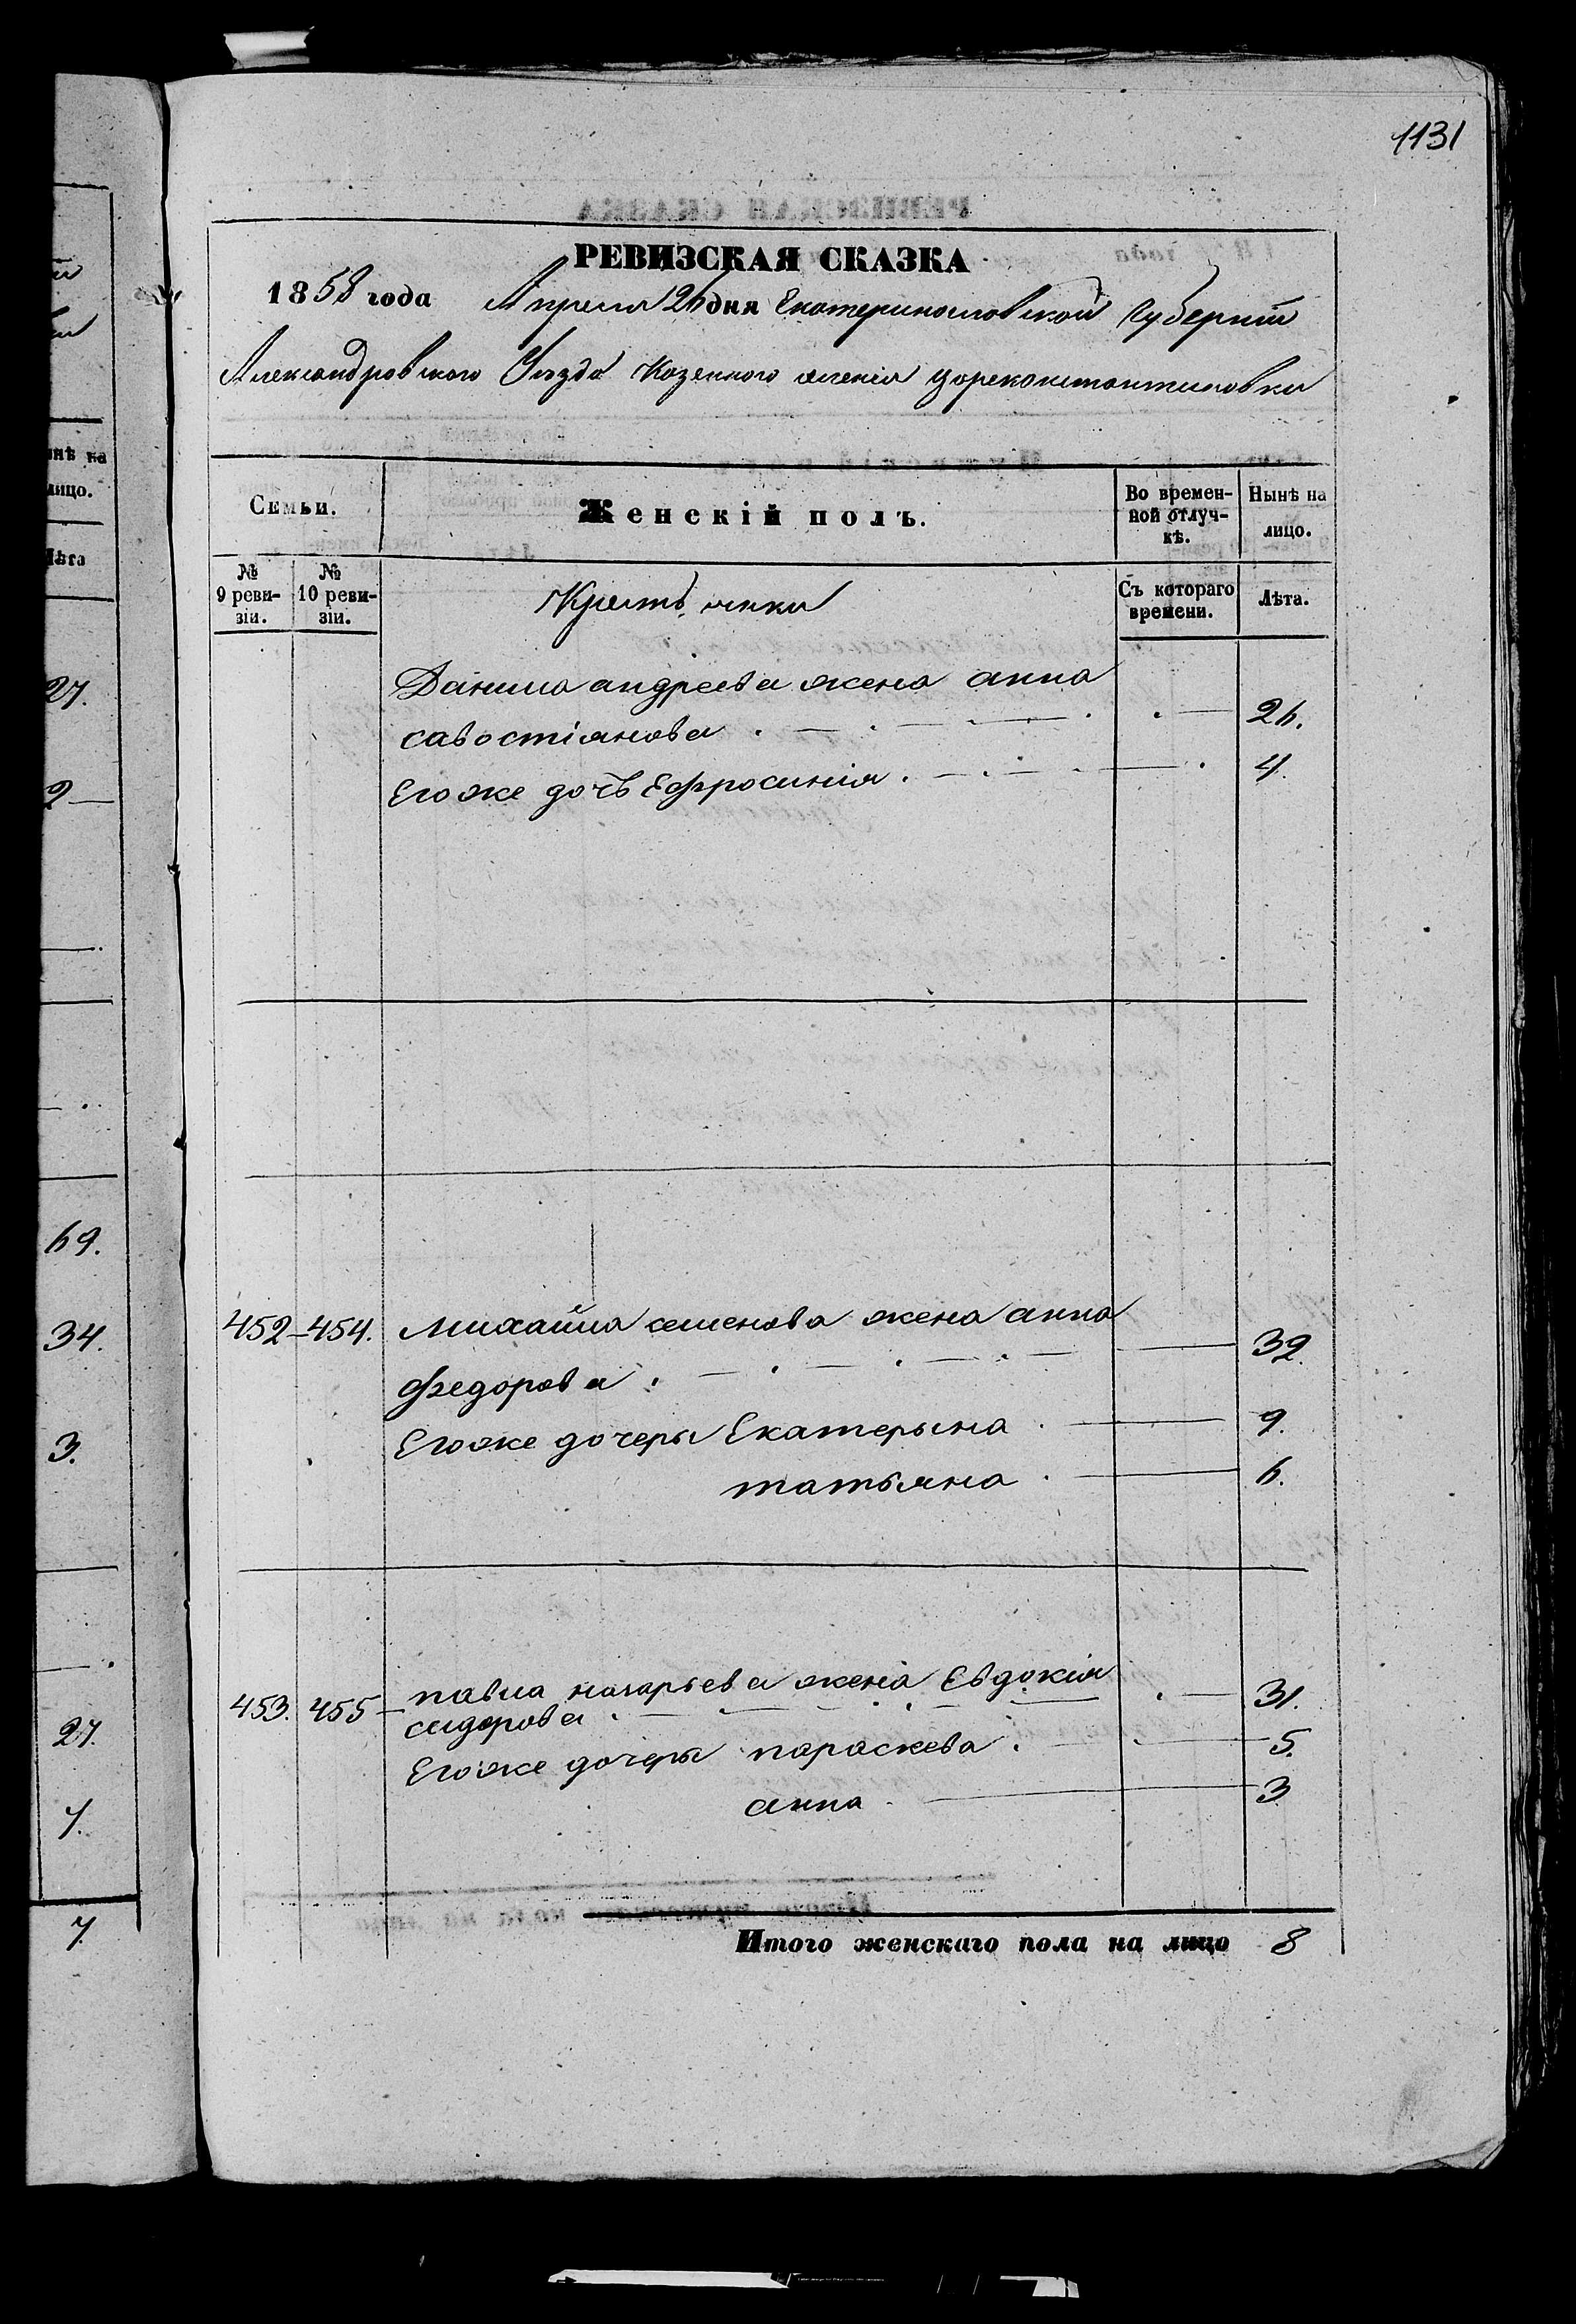 1131
РЕВИЗСКАЯ СКАЗКА
1858 года Апреля 26 дня Екатеринославской Губернии
Александровского Уезда Казенного селения Цареконстантиновки
Семьи.
Женскій полъ.
Во времен-
ной отлуч-
кѣ.
Нынѣ на
лицо.
№
9 реви-
зіи.
№
10 реви-
зіи.
Крестьянки
Съ котораго
времени.
Лѣта.
Данила андреева жена анна
савостіянова 26.
Егоже дочь Ефросинія 4.
452 454. Михайла семенова жена анна
федорова 32.
Егоже дочеры Екатерына 9.
татьяна 6.
453. 455 павла назарьева жена Евдокія 31.
сидорова
Егоже дочеры параскева 5.
анна 3
Итого женскаго пола на лицо 8
нѣ на
лицо.
Лѣта
27.
2
69.
34.
3.
27.
7.
7.